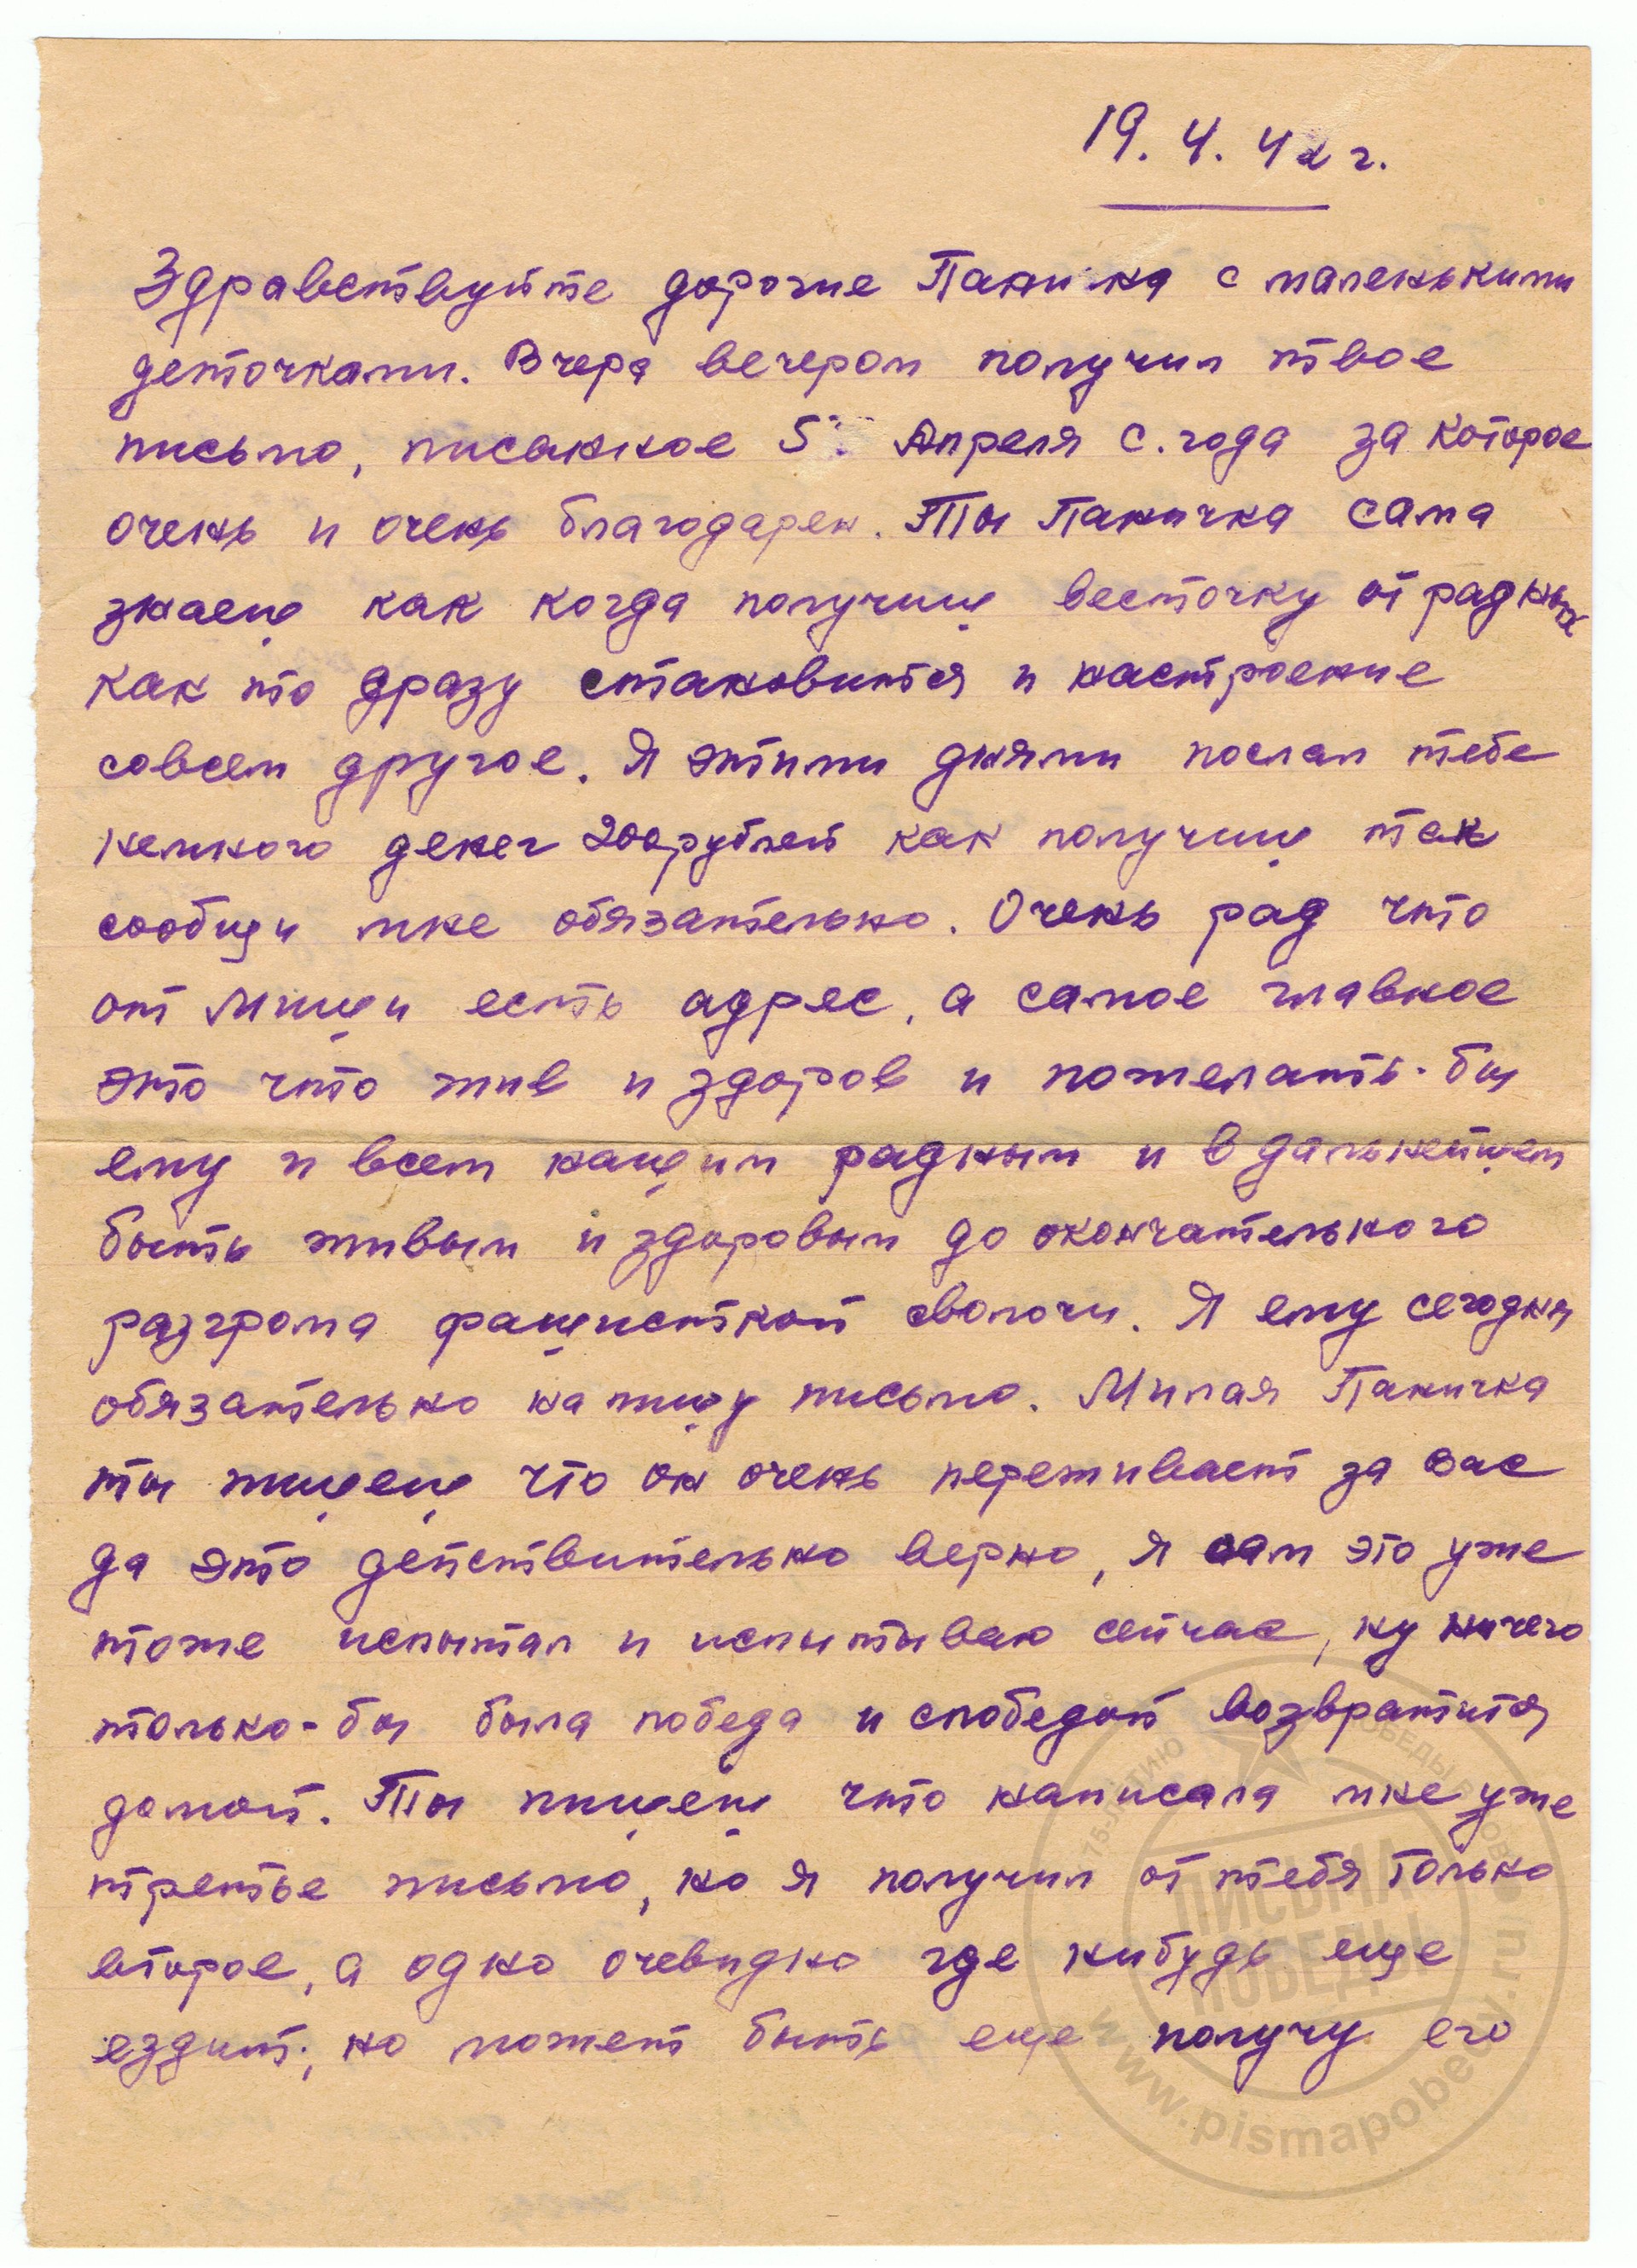 19. 4. 42 г.
Здравствуйте дорогие Паничка с маленькими
деточками. Вчера вечером получил твое
письмо, писанное 5 Апреля с. года за которое
очень и очень благодарен. Ты Паничка сама
знаеш как когда получиш весточку от радных
как то сразу становится и настроение
совсем другое. Я этими днями послал тебе
немного денег 200 рублей как получиш так
сообщи мне обязательно. Очень рад что
от Миши есть адрес, а самое главное
это что жив и здоров и пожелать-бы
ему и всем нашим радным и в дальнейшем
быть живым и здоровым до окончательного
разгрома фашисткой сволочи. Я ему сегодня
обязательно напишу письмо. Милая Паничка
ты пишеш что он очень переживает за вас
да это действительно верно, я сам это уже
тоже испытал и испытываю сейчас, ну ничего
только-бы была победа и с победой возвратится
домой. Ты пишеш что написала мне уже
третье письмо, но я получил от тебя только
второе, а одно очевидно где нибудь еще
ездит, но может быть еще получу его
ПИСЬМА
ПОБЕДЫ
www.pismapobedy.ru